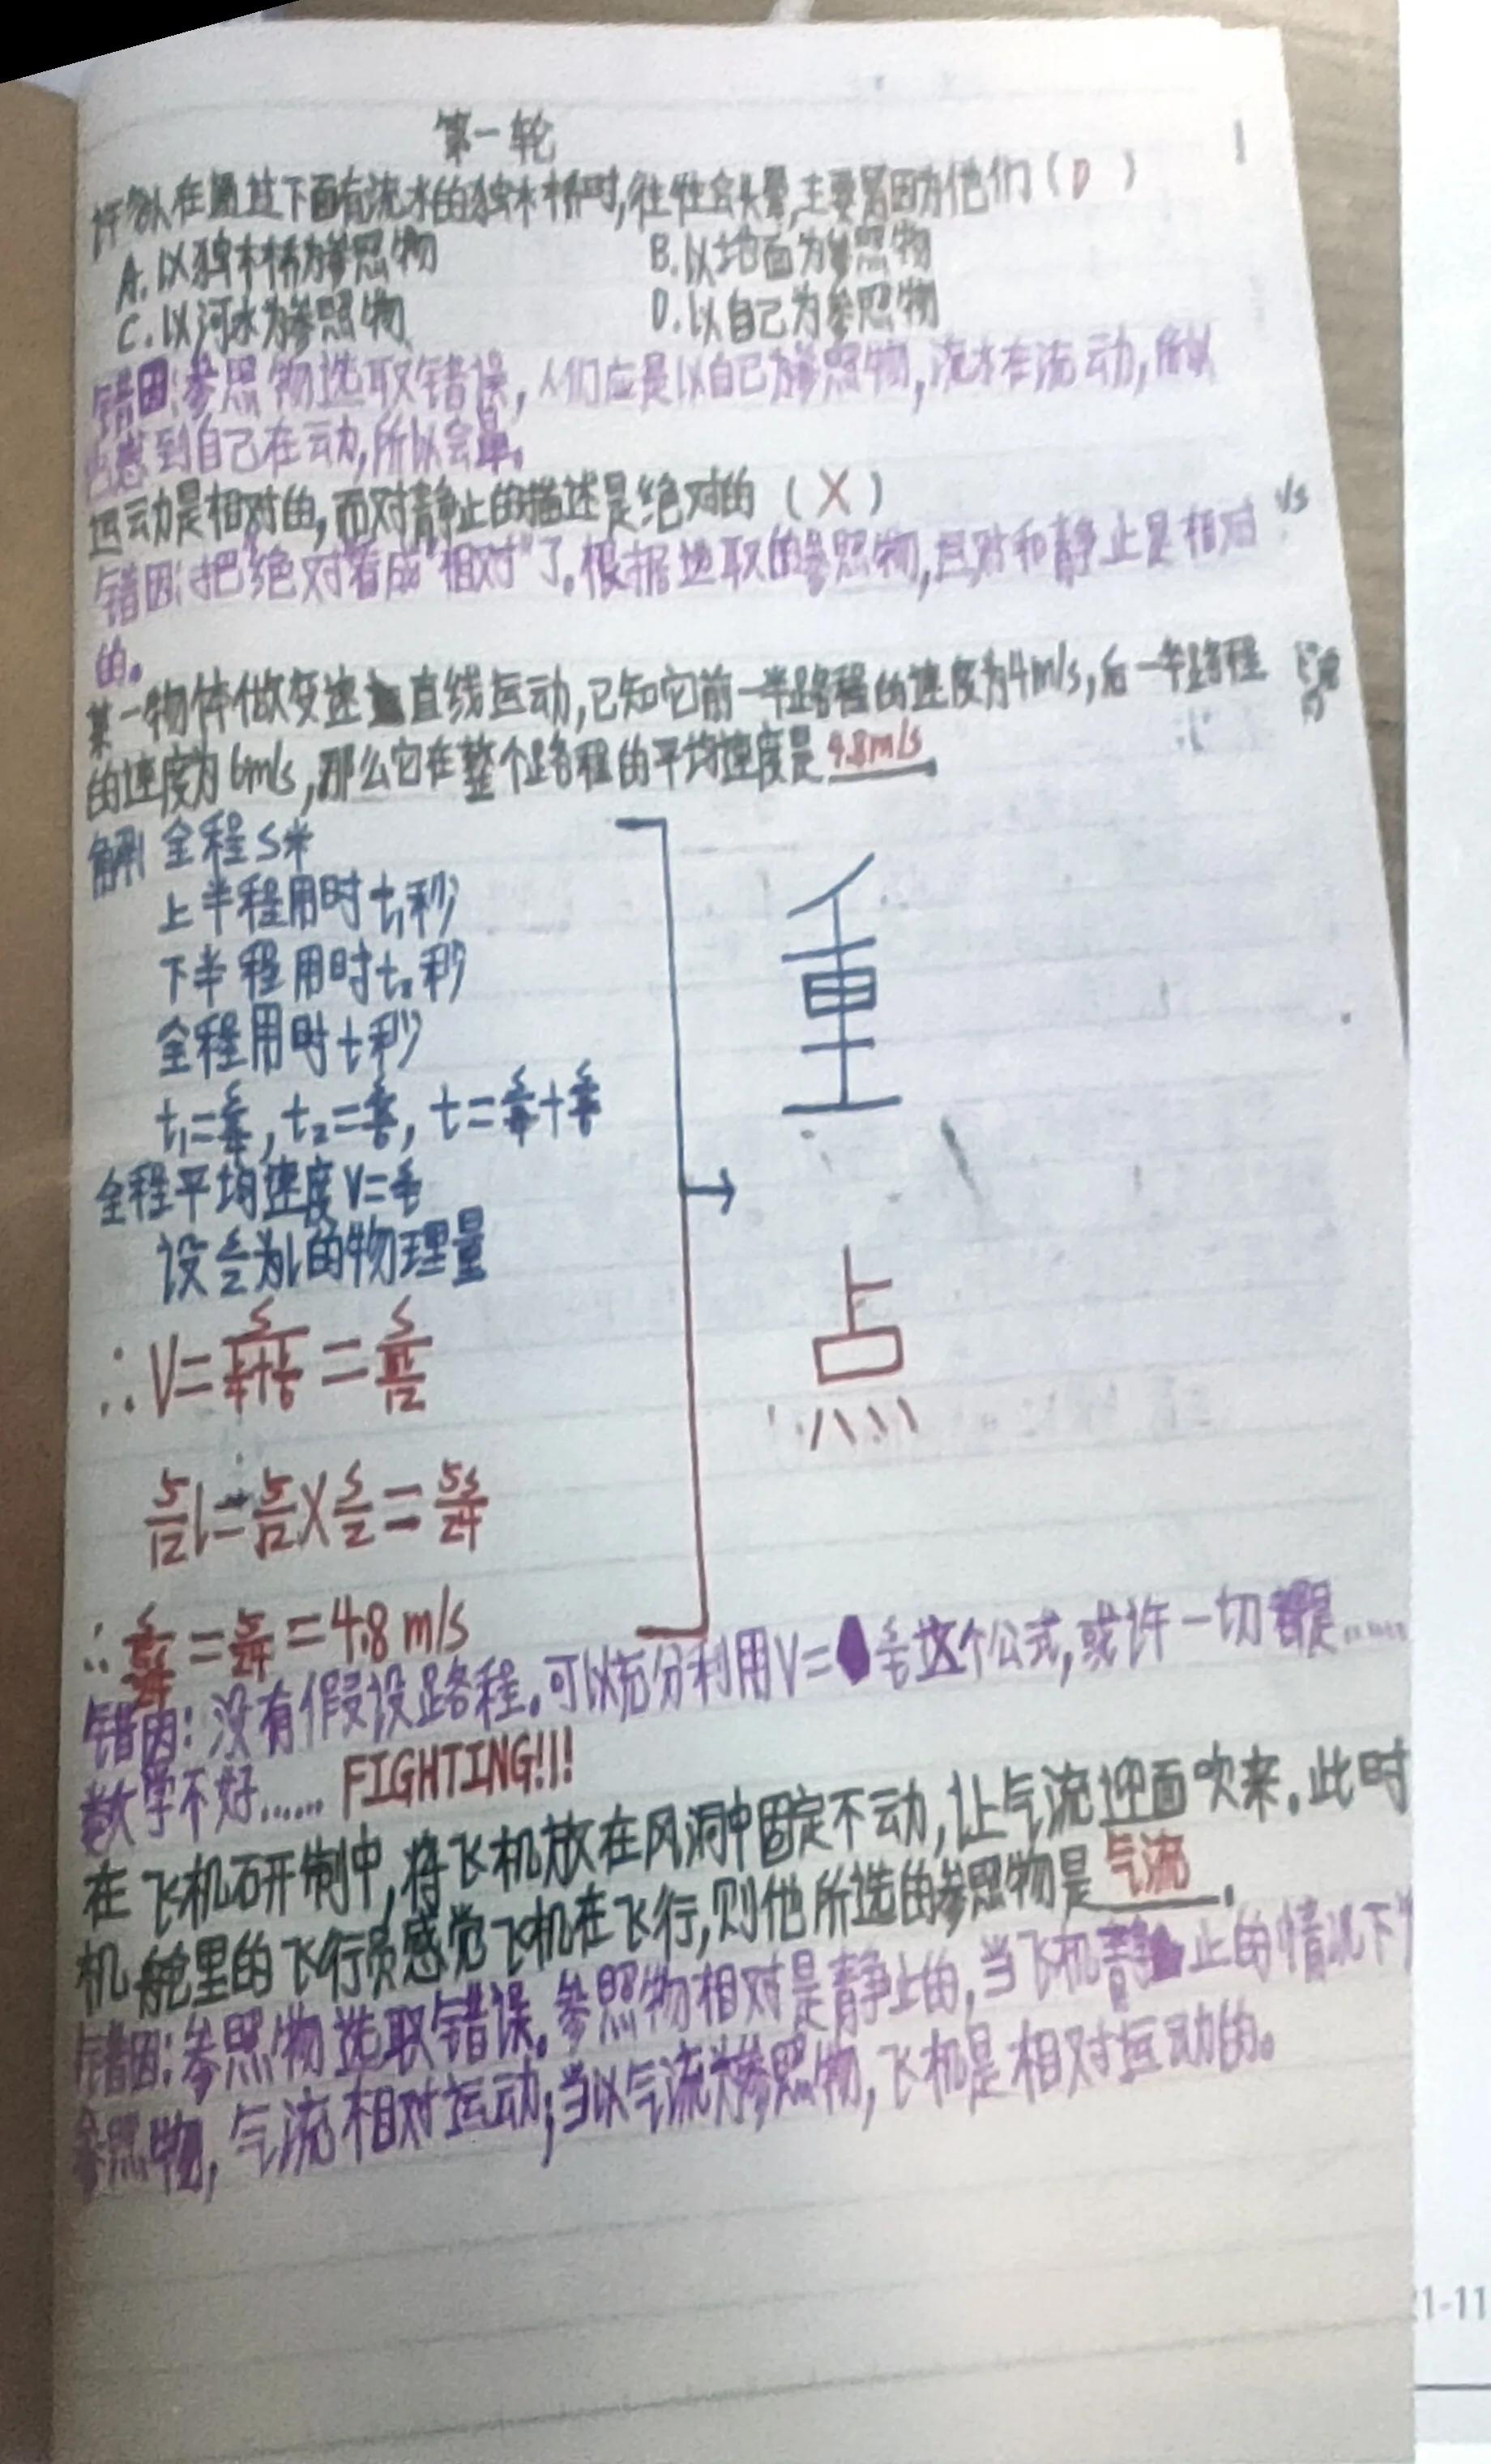 第一轮
1
许多人在通过下面有流水的独木桥时,往往会头晕,主要是因为他们(D)
A.以独木桥为参照物 B.以地面为参照物
C.以河水为参照物 D.以自己为参照物
错因:参照物选取错误,人们应是以自己为参照物,流水在流动,所以
感到自己在动,所以会晕。
运动是相对的,而对静止的描述是绝对的(X)
错因:把"绝对"看成"相对"了。根据选取的参照物,且对和静止是相对
的。
某一物体做变速直线运动,已知它前一半路程的速度为4m/s,后一半路程
的速度为6m/s,那么它在整个路程的平均速度是4.8m/s
解 全程s米
上半程用时t₁秒
下半程用时t₂秒
全程用时t秒
全程平均速度V=s/t
设s/2为l的物理量
重
点
5/12 l=5/12×s/2=5s/24
=4.8m/s
错因:没有假设路程。可以充分利用V=s/t这个公式,或许一切都是……
数学不好…… FIGHTING!!!
在飞机研制中,将飞机放在风洞中固定不动,让气流迎面吹来。此时
机舱里的飞行员感觉飞机在飞行,则他所选的参照物是气流.
错因:参照物选取错误。参照物相对是静止的,当飞机静止的情况下
参照物,气流相对运动;当以气流为参照物,飞机是相对运动的。
21-11